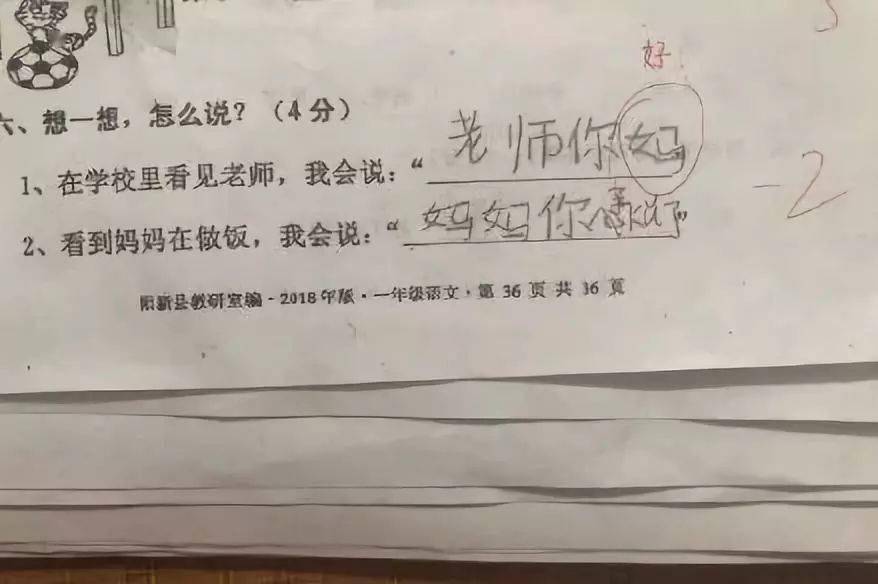 好
六、想一想，怎么说？（4分）
1、在学校里看见老师，我会说：“老师你妈
2、看到妈妈在做饭，我会说：“妈妈你辛苦了”
-2
阳新县教研室编·2018年版·一年级语文·第 36 页 共 36 页